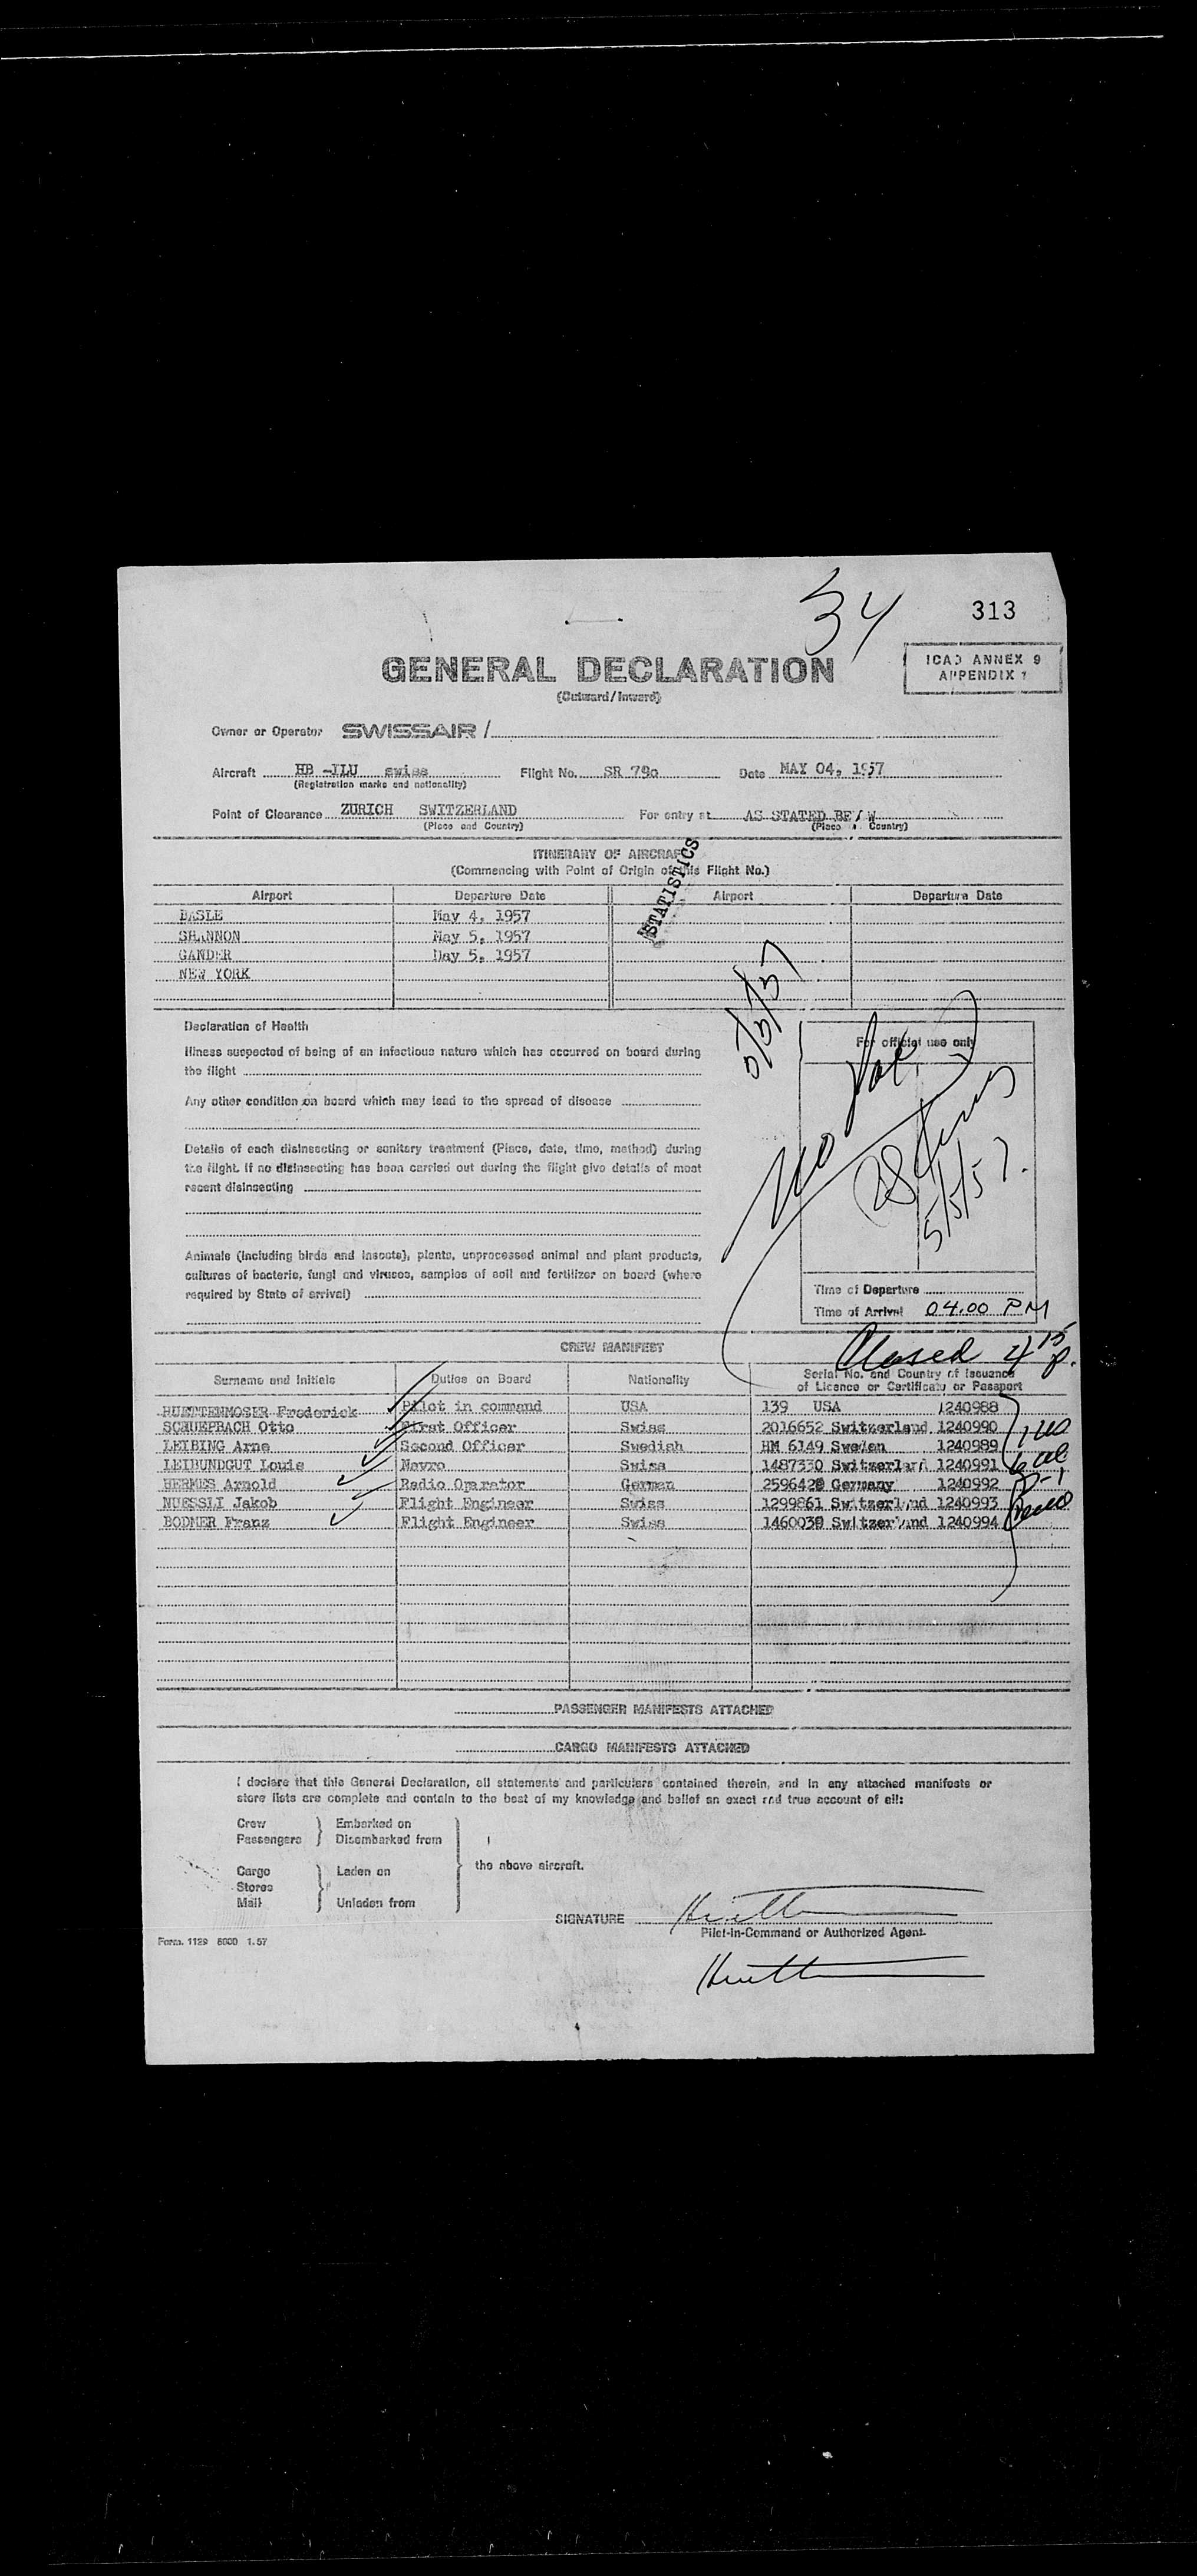 34
313
GENERAL DECLARATION
(Outward/Inward)
ICAO ANNEX 9
APPENDIX 1
Owner or Operator SWISSAIR /
Aircraft HB -ILU swiss Flight No. SR 780 Date MAY 04, 1957
(Registration marks and nationality)
Point of Clearance ZURICH SWITZERLAND For entry at AS STATED BELOW
(Place and Country) (Place and Country)
ITINERARY OF AIRCRAFT
(Commencing with Point of Origin of this Flight No.)
STATISTICS
Airport Departure Date Airport Departure Date
BASLE May 4, 1957
SHANNON May 5, 1957
GANDER May 5, 1957
NEW YORK
5/5/57
Declaration of Health
Illness suspected of being of an infectious nature which has occurred on board during
the flight
Any other condition on board which may lead to the spread of disease
Details of each disinsecting or sanitary treatment (Place, date, time, method) during
the flight. If no disinsecting has been carried out during the flight give details of most
recent disinsecting
Animals (including birds and insects), plants, unprocessed animal and plant products,
cultures of bacteria, fungi and viruses, samples of soil and fertilizer on board (where
required by State of arrival)
For official use only
No Pax
5/5/57.
Time of Departure
Time of Arrival 04.00 PM
Closed 4 15 P.
CREW MANIFEST
Surname and Initials Duties on Board Nationality Serial No. and Country of Issuance
of Licence or Certificate or Passport
HUETTENMOSER Frederick Pilot in command USA 139 USA 1240988
SCHUEPBACH Otto First Officer Swiss 2016652 Switzerland 1240990
LEIBING Arne Second Officer Swedish HM 6149 Sweden 1240989
LEIBUNDGUT Louis Navro Swiss 1487330 Switzerland 1240991
HERMES Arnold Radio Operator German 2596428 Germany 1240992
NUESSLI Jakob Flight Engineer Swiss 1299861 Switzerland 1240993
BODMER Franz Flight Engineer Swiss 1460038 Switzerland 1240994
PASSENGER MANIFESTS ATTACHED
CARGO MANIFESTS ATTACHED
I declare that this General Declaration, all statements and particulars contained therein, and in any attached manifests or
store lists are complete and contain to the best of my knowledge and belief an exact and true account of all:
Crew Embarked on
Passengers Disembarked from
the above aircraft.
Cargo Laden on
Stores
Mail Unladen from
SIGNATURE
Pilot-in-Command or Authorized Agent.
Form. 1129 8000 1.57